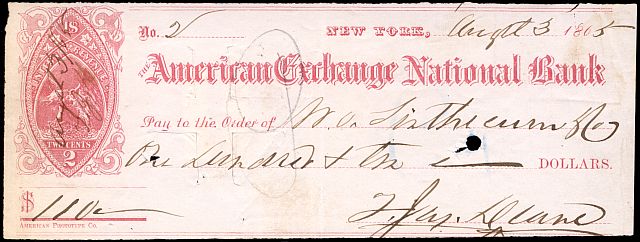 U.S.
INTER. REVENUE
TWO CENTS
2
No. 2 NEW YORK, Augt 3 1865
THE American Exchange National Bank
Pay to the Order of W. O. Linthicum & Co
One Hundred & Ten DOLLARS.
$ 110
AMERICAN PHOTOTYPE CO.
F. Jas. Deane